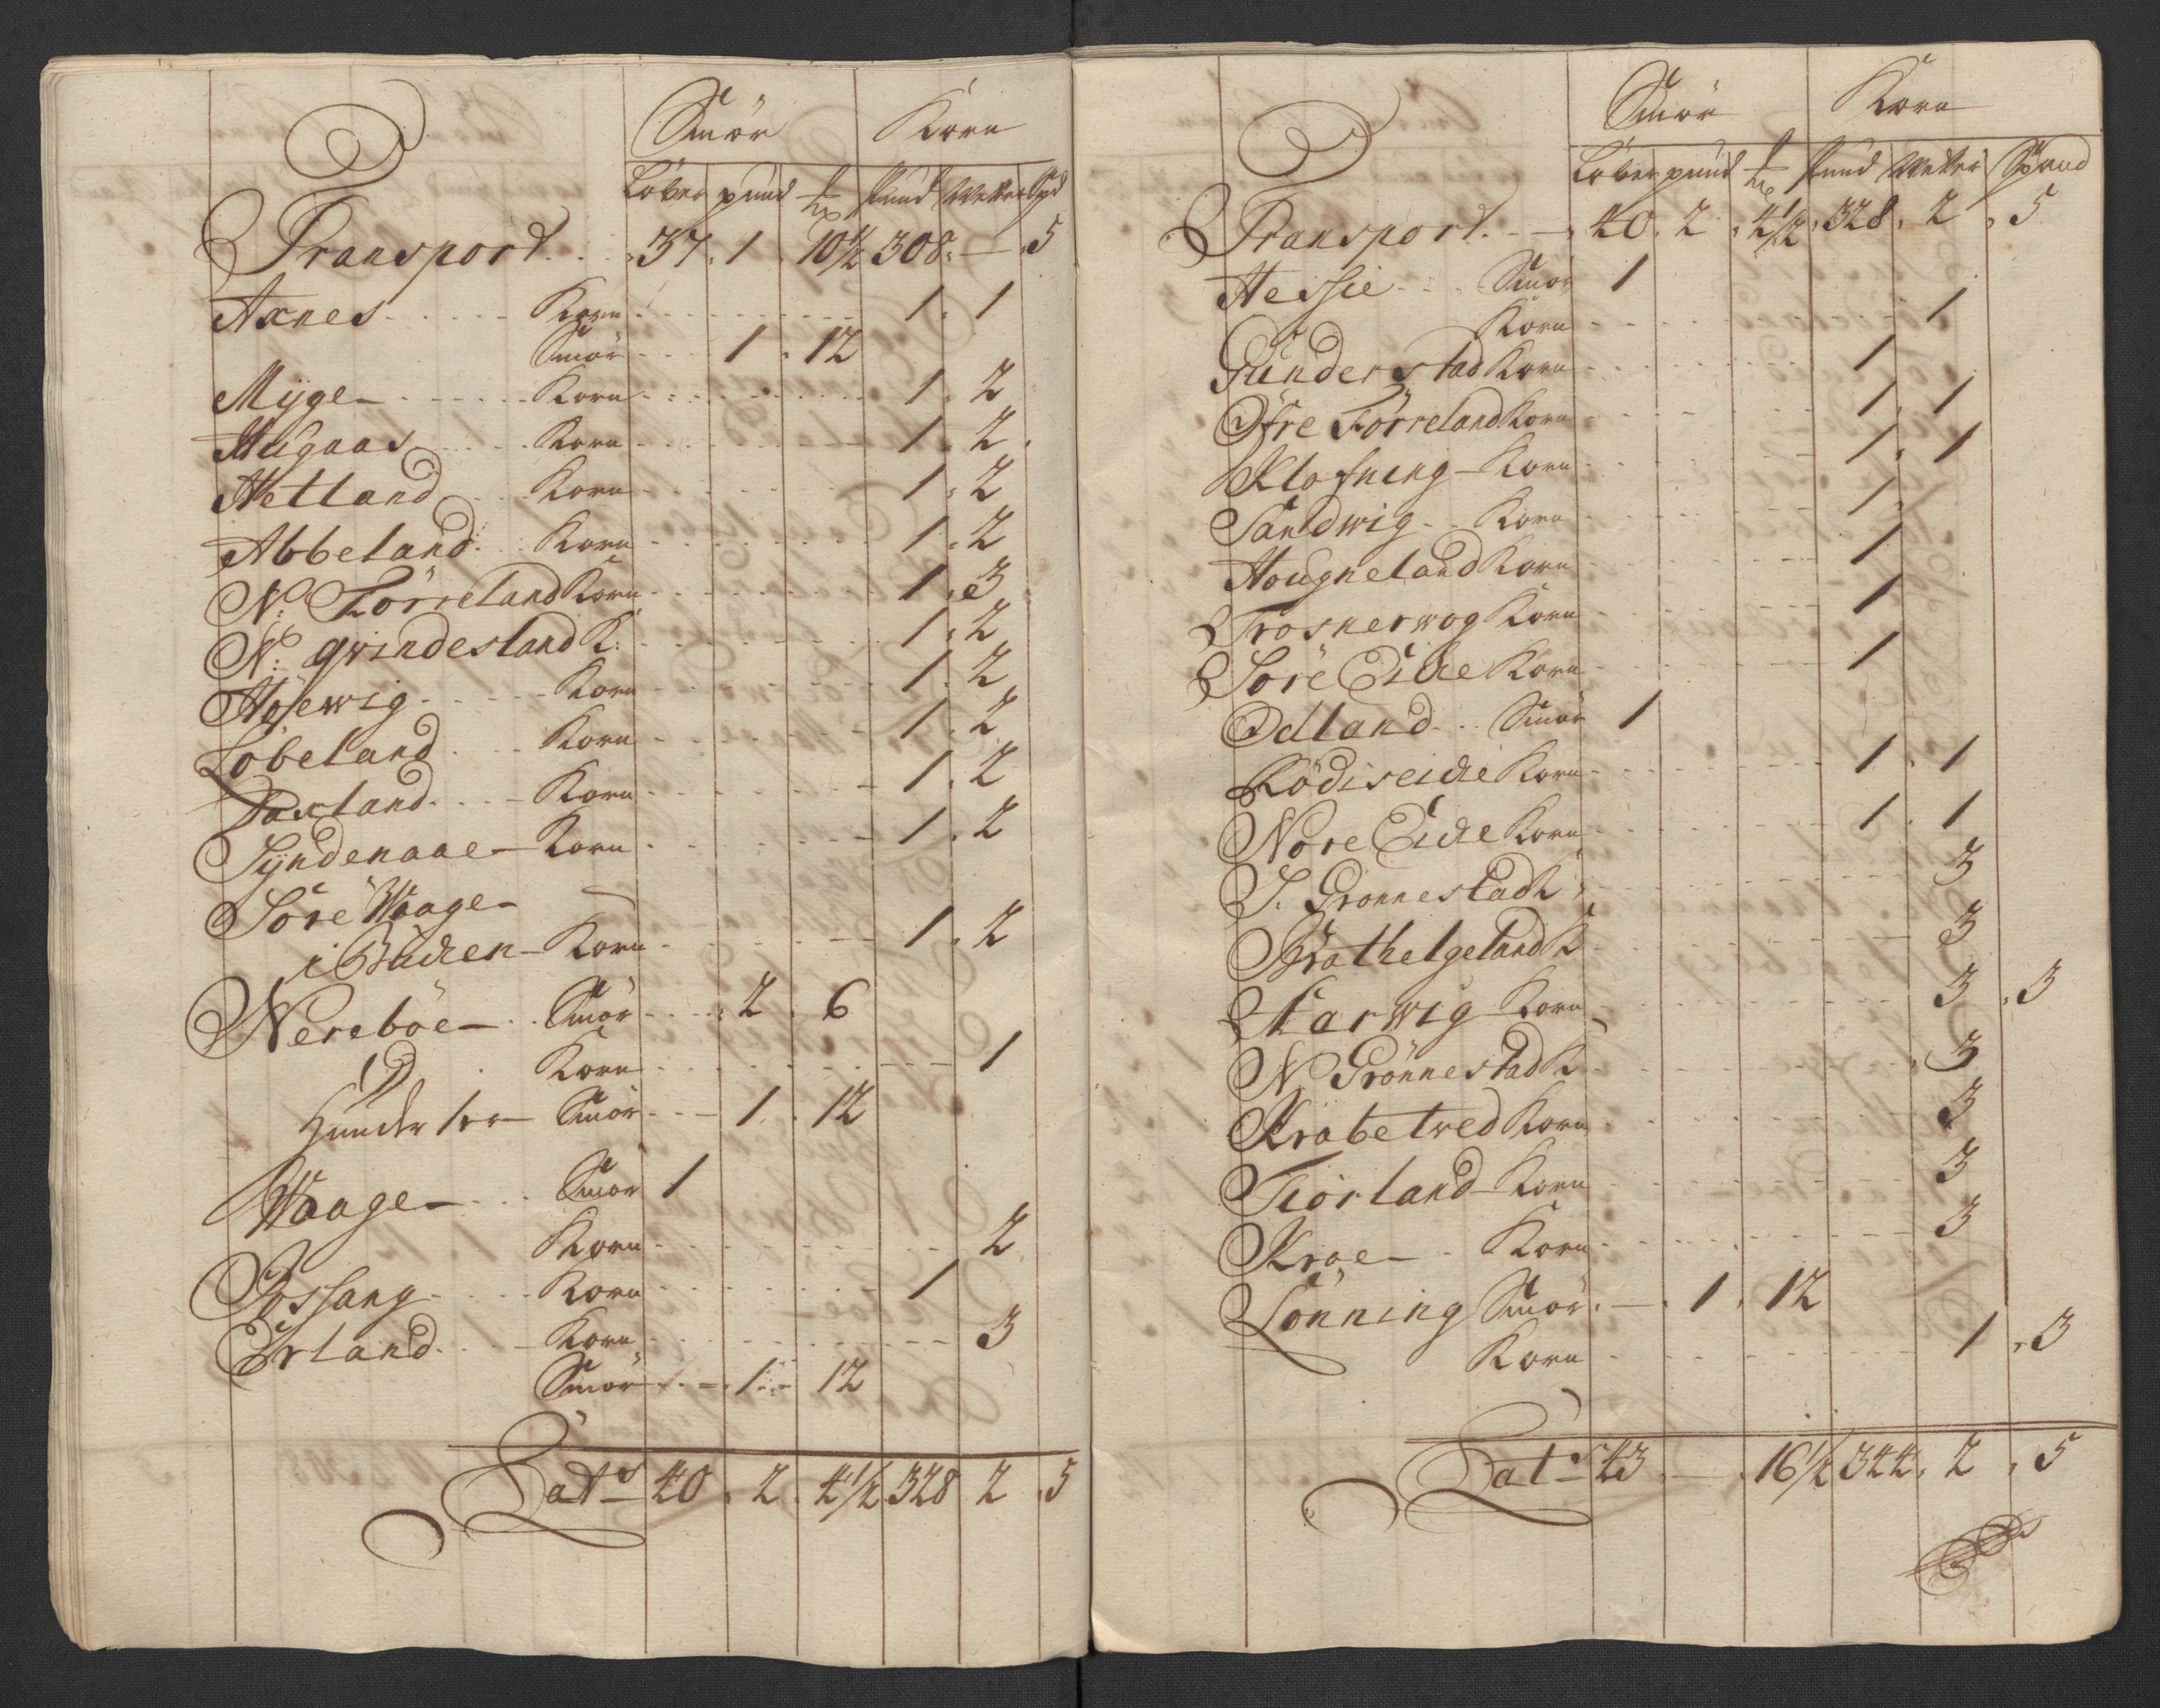 Smör Korn
Löber pund Pund Wetter Spd
Transport 37. 1. 10½ 308. — . 5
Axnes Korn 1. 1
Smör 1. 12
Mÿge Korn 1. 2
Hugaas Korn 1. 2.
Hetland Korn 1. 2
Abbeland Korn 1. 2
N: Törreland Korn 1. 3
N: qvindesland K: 1. 2
Höÿewig Korn 1. 2
Löbeland Korn 1. 2
Paxland Korn 1. 2
Sÿndenaae Korn 1. 2
Söre Waage
i Buden Korn 1. 2
Nereböe Smör 2. 6
Korn 1
Smör 1. 12
Waage Smör 1
Korn 2
Fossang Korn 1
Erland Korn 3
Smör 1. 12
Lats 40. 2. 4½ 328 2. 5
Smör Korn
Löber pund Pund Wetter Spand
Transport 40. 2. 4½. 328. 2. 5
Hessie Smör 1
Korn 1
Gunderstad Korn 1
Öfre Törreland Korn 1. 1
Klofning Korn 1. 1
Sandwig Korn 1.
Hougneland Korn 1
Trosnerwog Korn 1
Söre Eide Korn 1
Odland Smör 1
Rödiseide Korn 1. 1
Nore Eide Korn 1. 1
S. Grönnestad K 3
Brathelgeland K 3
Starwig Korn 3. 3
N Grönnestad K 3
Krabetved Korn 3
Tiörland Korn 3
Kroe Korn 3
Lönning Smör. — . 1. 12
Korn 1. 3
Lats 43. — . 16½ 344. 2. 5